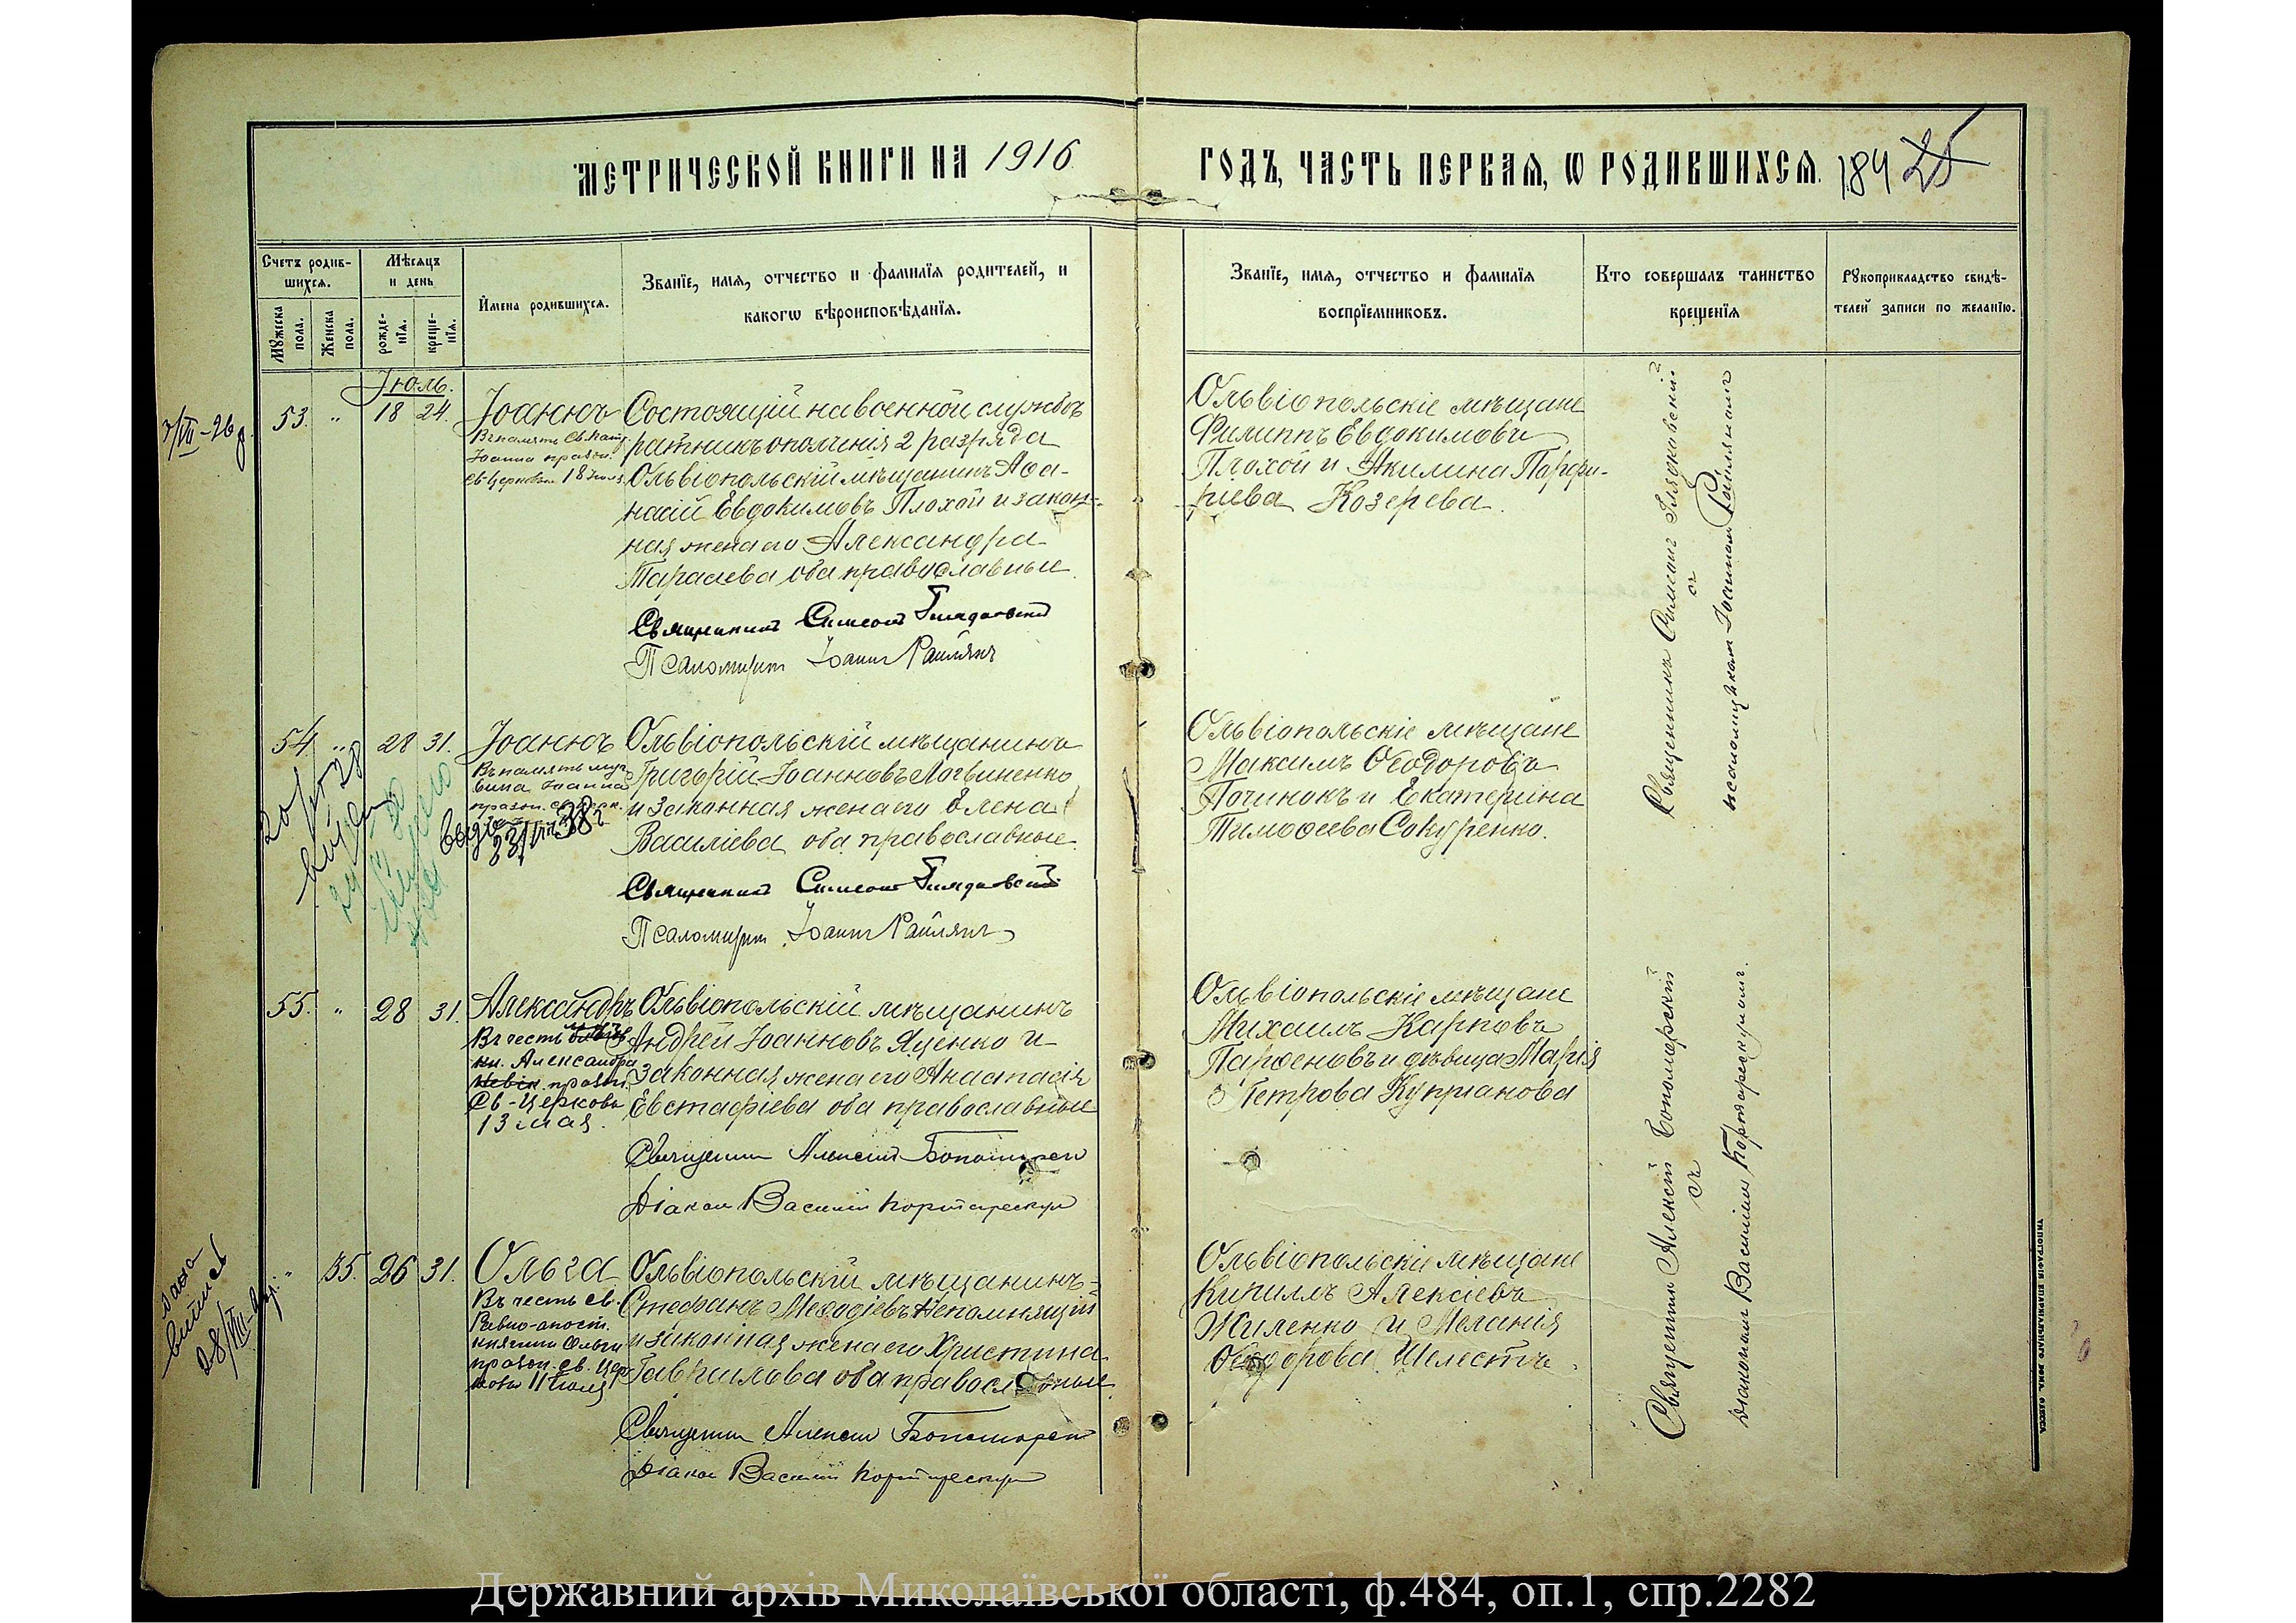 МЕТРИЧЕСКОЙ КНИГИ НА 1916
ГОДЪ, ЧАСТЬ ПЕРВАѦ, Ѡ РОДИВШИХСѦ.
184 25
Счетъ родив-
шихсѧ.
Мѣсѧцъ
и день
Мꙋжеска
пола.
Женска
пола.
рожде-
нїѧ.
креще-
нїѧ.
Имена родившихсѧ.
Званїе, имѧ, отчество и фамилїѧ родителей, и
какогѡ вѣроисповѣданїѧ.
Званїе, имѧ, отчество и фамилїѧ
воспрїемниковъ.
Кто совершалъ таинство
крещенїѧ
Рꙋкоприкладство свидѣ-
телей записи по желанїю.
Іюль.
53. " 18 24.
Іоаннъ
Іоанна праздн.
св. церковью 18 Іюля
Состоящій на военной службѣ
ратникъ ополченія 2 разряда
Ольвіопольскій мѣщанинъ Аѳа-
насій Евдокимовъ Плохой и закон-
ная жена его Александра
Тарасіева оба православные.
Священникъ Симеонъ
Псаломщикъ Іоаннъ Райлянъ
Ольвіопольскіе мѣщане
Филиппъ Евдокимовъ
Плохой и Акилина Порфи-
ріева Козерева.
Священникъ Симеонъ
съ
псаломщикомъ Іоанномъ Райляномъ
54. " 28 31.
Іоаннъ
Въ память
Іоанна
23/VIII 38 г
Ольвіопольскій мѣщанинъ
Григорій Іоанновъ Логвиненко
и законная жена его Елена
Василіева оба православные.
Священникъ Симеонъ
Псаломщикъ Іоаннъ Райлянъ
Ольвіопольскіе мѣщане
Максимъ Ѳеодоровъ
Починокъ и Екатерина
Тимоѳеева Сокуренко.
55. " 28 31.
Александръ
Въ честь
кн. Александра
Невск. праздн.
Св. Церковью
13 мая.
Ольвіопольскій мѣщанинъ
Андрей Іоанновъ Яценко и
законная жена его Анастасія
Евстафіева оба православные
Священникъ Алексій
Діаконъ Василій
Ольвіопольскіе мѣщане
Михаилъ Карповъ
Парѳеновъ и дѣвица Марія
Петрова Купріанова
Священникъ Алексій
съ
діакономъ Василіемъ
" 35. 26 31.
Ольга
Въ честь св.
Равно-апост.
княгини Ольги
праздн. св. Цер-
ковью 11 Іюля
Ольвіопольскій мѣщанинъ
Стефанъ Меѳодіевъ Непомнящій
и законная жена его Христина
Гавриилова оба православные.
Священникъ Алексій
Діаконъ Василій
Ольвіопольскіе мѣщане
Кириллъ Алексіевъ
Жиленко и Меланія
Ѳеодорова Шелестъ.
ТИПОГРАФІЯ ЕПАРХІАЛЬНАГО ДОМА. ОДЕССА.
Державний архів Миколаївської області, ф.484, оп.1, спр.2282